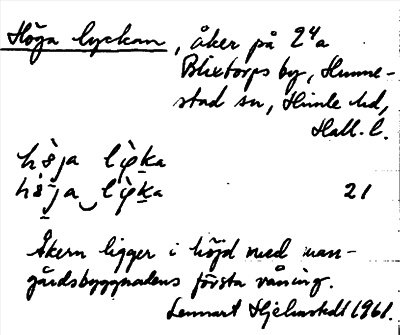 Höga lyckan, åker på 2⁴a
Blixtorps by, Hunne-
stad sn, Himle hd,
Hall. l.
21
Åkern ligger i höjd med man-
gårdsbyggnadens första våning.
Lennart Hjelmstedt 1961.